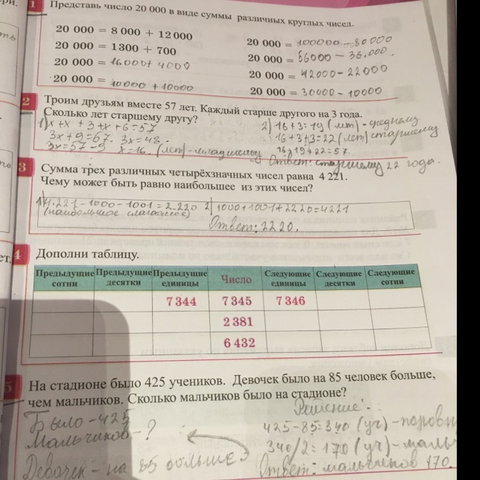 1 Представь число 20 000 в виде суммы различных круглых чисел.
20 000 = 8 000 + 12 000
20 000 = 1300 + 700
20 000 = 16000 + 4000
20 000 = 10000 + 10000
20 000 = 100000 - 80000
20 000 = 56000 - 36.000.
20 000 = 42000 - 22000
20 000 = 30000 - 10000
2 Троим друзьям вместе 57 лет. Каждый старше другого на 3 года.
Сколько лет старшему другу?
1) x + x + 3 + x + 6 = 57
3x + 9 = 67. 3x = 48.
3x = 57 - 9 x = 16 (лет) - младшему
2) 16 + 3 = 19 (лет) - среднему
16 + 3 + 3 = 22 (лет) старшему
16 + 19 + 22 = 57.
Ответ: старшему 22 года.
3 Сумма трех различных четырёхзначных чисел равна 4 221.
Чему может быть равно наибольшее из этих чисел?
1) 4.221 - 1000 - 1001 = 2.220 2) 1000 + 1001 + 2220 = 4221
(наибольшое слагаемое)
Ответ: 2220.
4 Дополни таблицу.
Предыдущие сотни Предыдущие десятки Предыдущие единицы Число Следующие единицы Следующие десятки Следующие сотни
7 344 7 345 7 346
2 381
6 432
5 На стадионе было 425 учеников. Девочек было на 85 человек больше,
чем мальчиков. Сколько мальчиков было на стадионе?
Было - 425
Мальчиков - ?
Девочек - на 85 больше
Решение:
425 - 85 = 340 (уч) - поровн
340/2 = 170 (уч) - маль
Ответ: мальчиков 170.